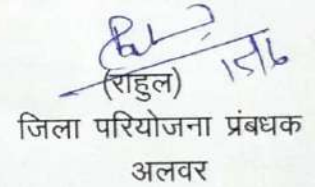 15/6
(राहुल)
जिला परियोजना प्रंबधक
अलवर